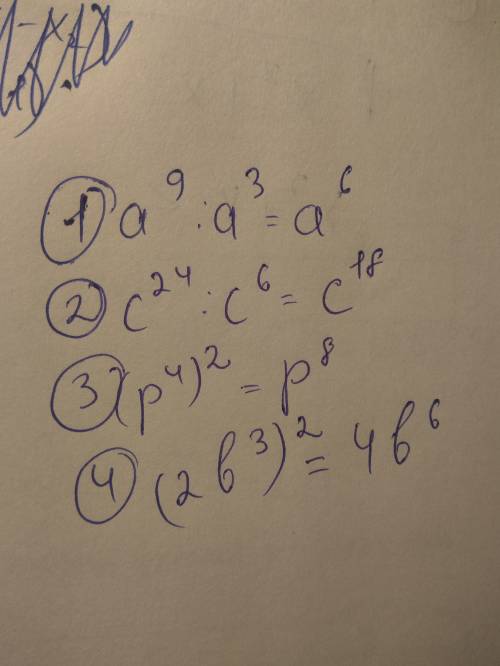 ① a⁹ : a³ = a⁶
② c²⁴ : c⁶ = c¹⁸
③ (p⁴)² = p⁸
④ (2b³)² = 4b⁶